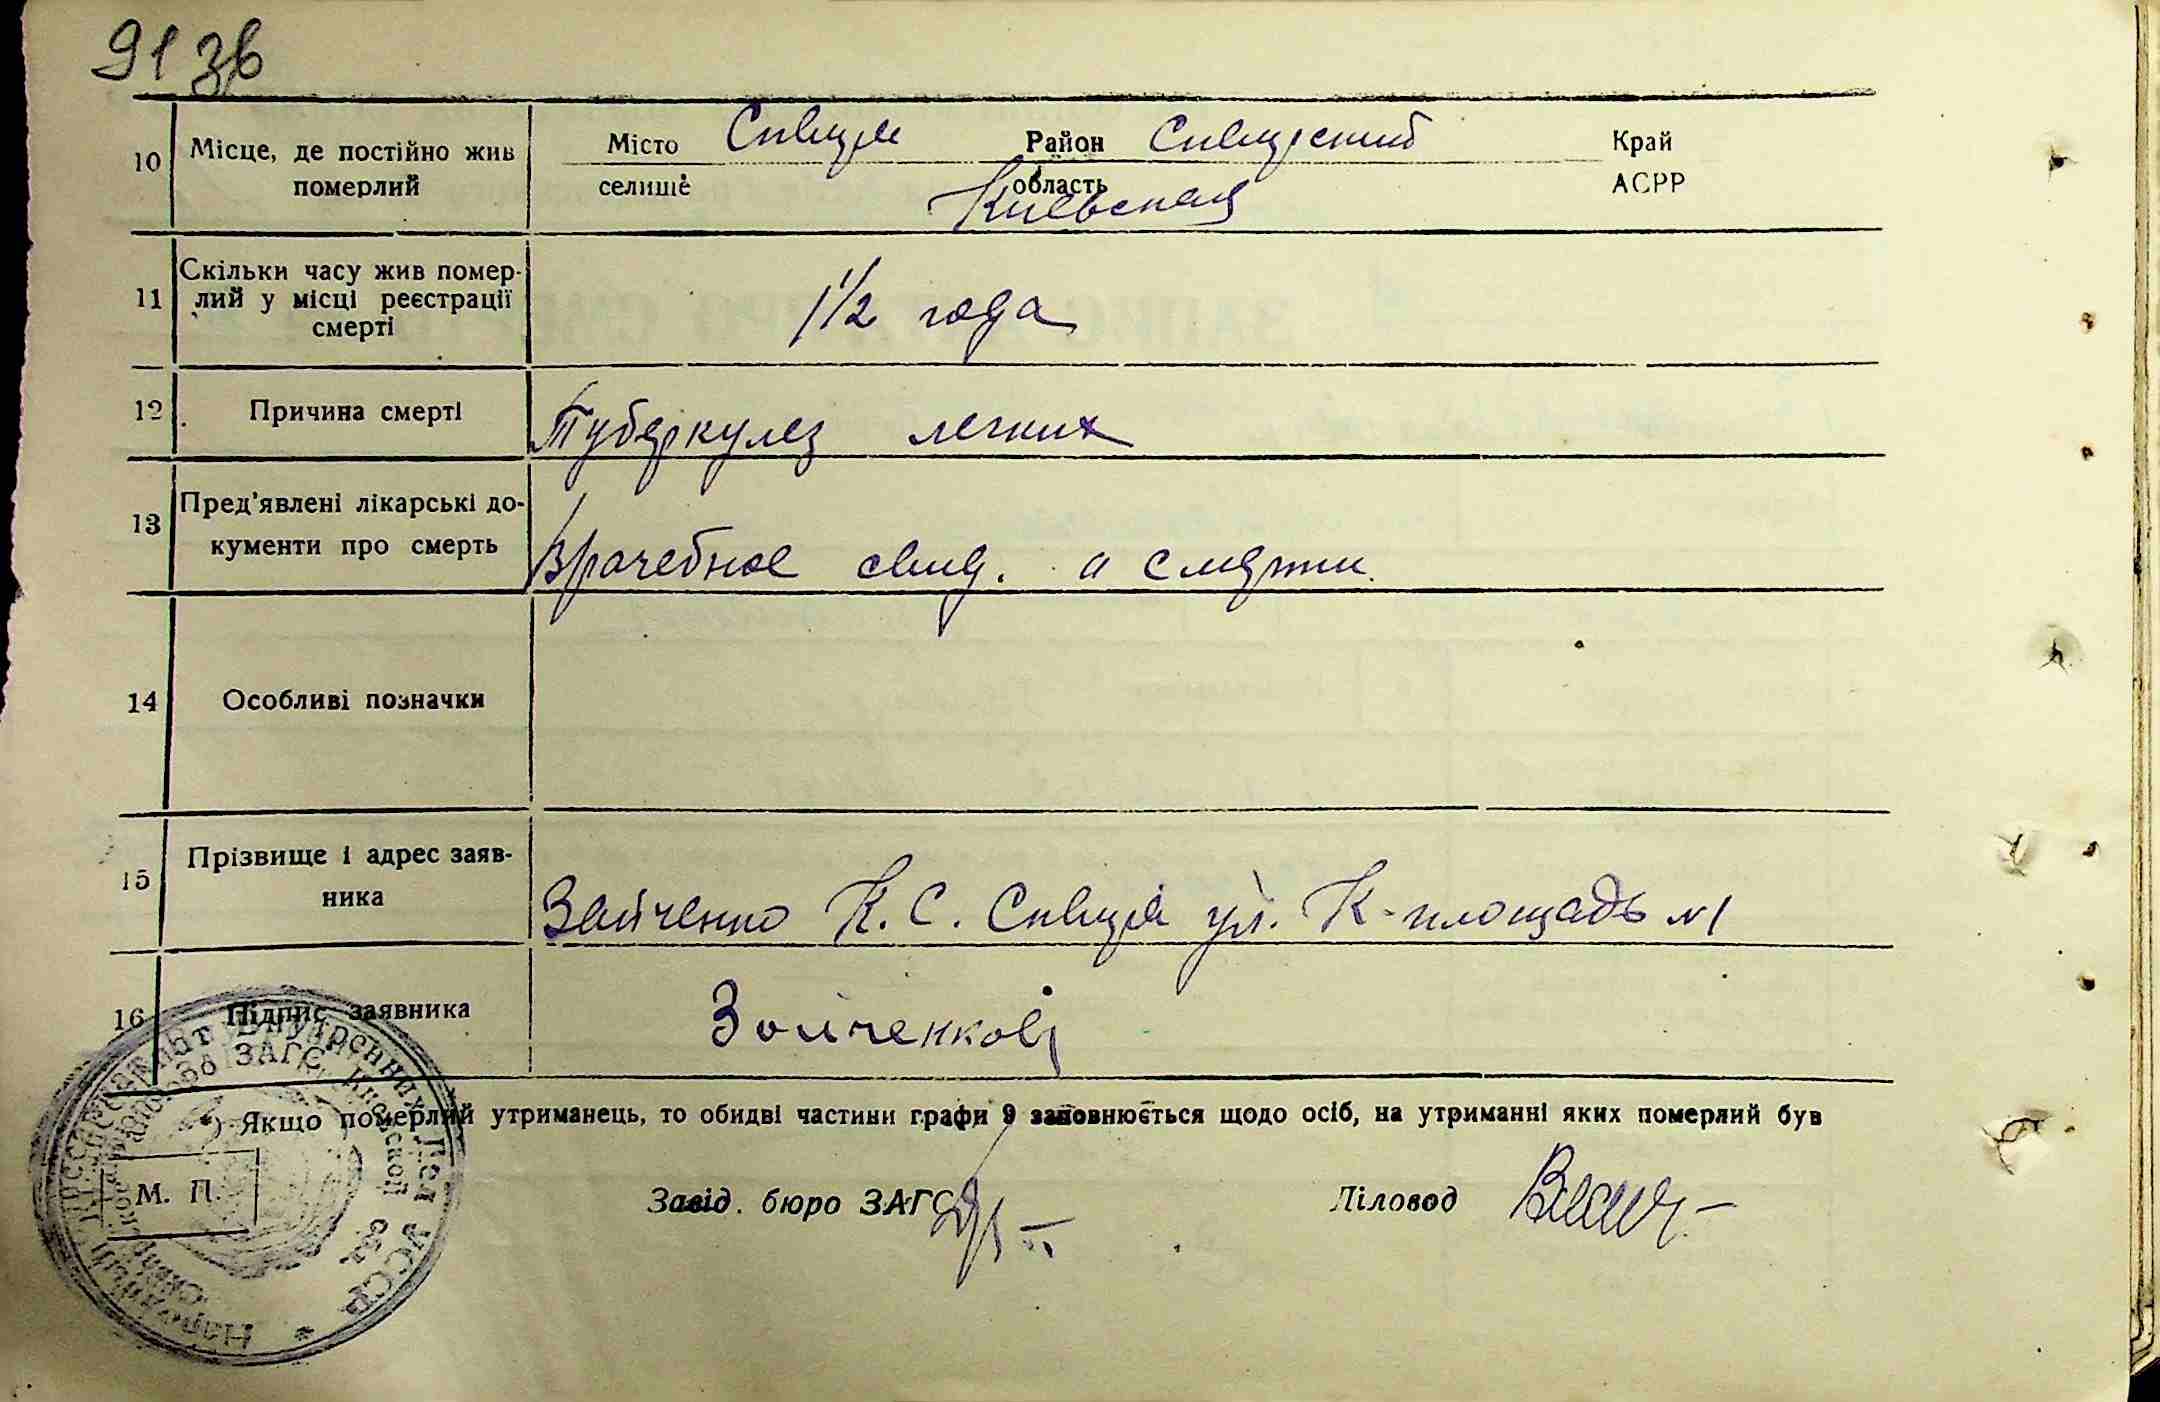 91 зв
10 Місце, де постійно жив померлий
Місто Сквира Район Сквирский Край
селище область Киевская АСРР
11 Скільки часу жив помер-
лий у місці реєстрації
смерті
1 1/2 года
12 Причина смерті Туберкулез легких
13 Пред'явлені лікарські до-
кументи про смерть
Врачебное свид. о смерти.
14 Особливі позначки
15 Прізвище і адрес заяв-
ника
Зайченко К. С. Сквира ул. К-площадь №1
16 Підпис заявника
*) Якщо померлий утриманець, то обидві частини графи 9 заповнюється щодо осіб, на утриманні яких померлий був
М. П.
Завід. бюро ЗАГС Діловод
Народный Комиссариат Внутренних Дел УССР
ЗАГС Киевской обл.